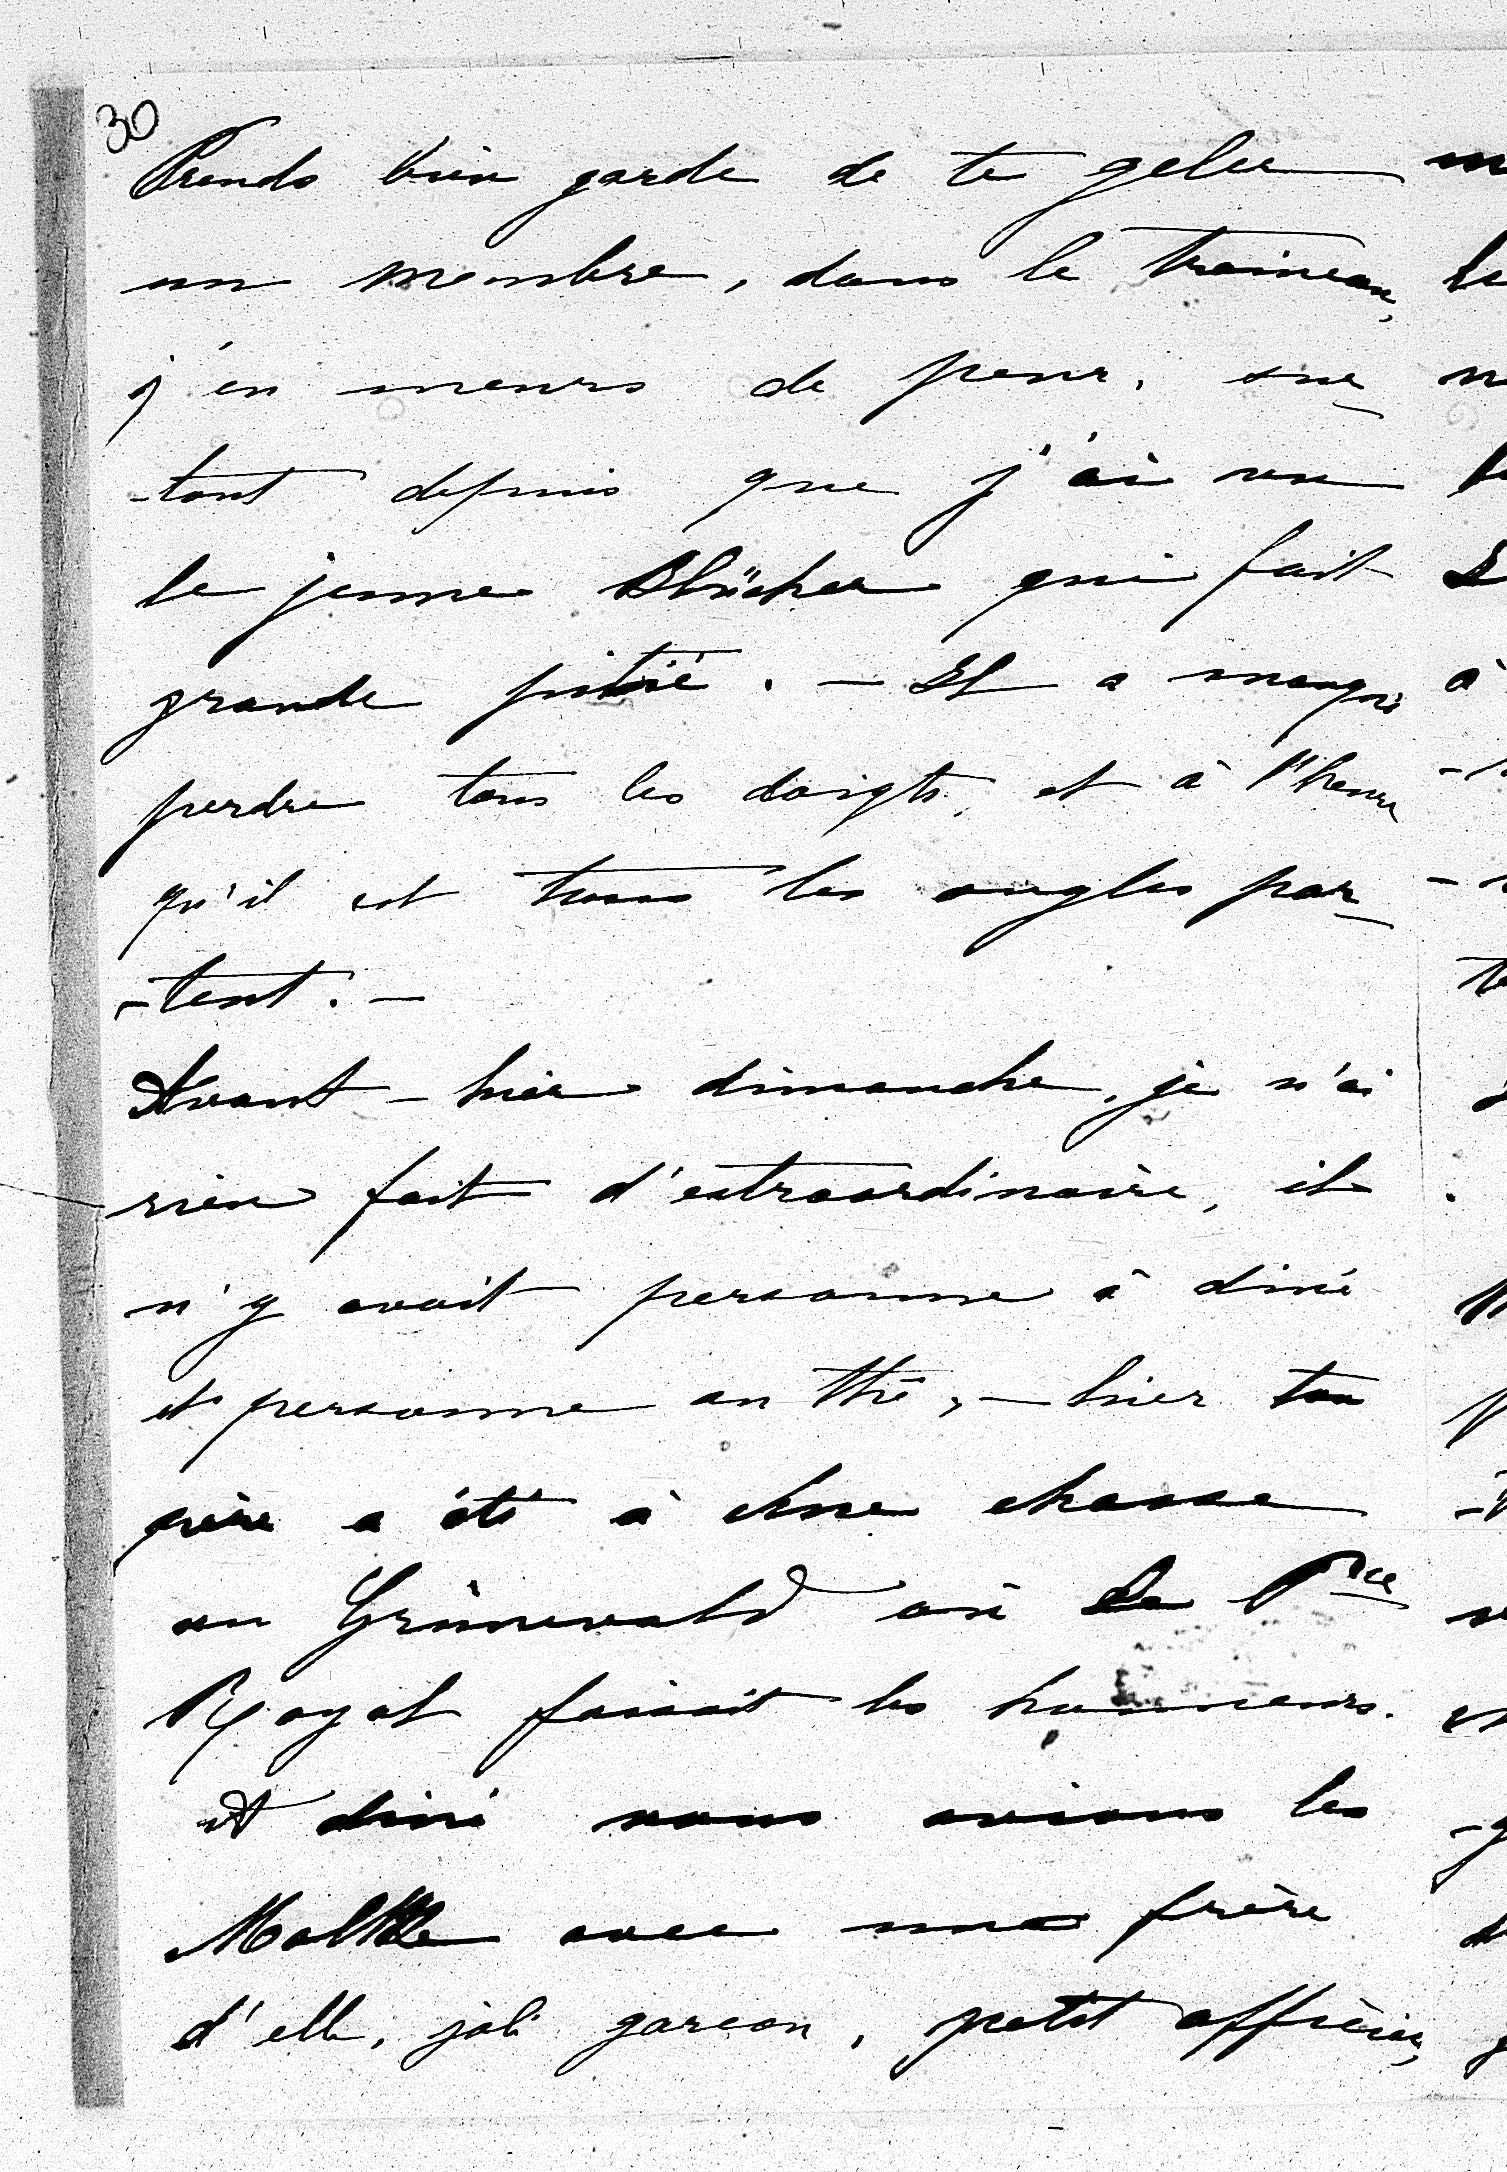 30
Prends bien garde de te geler
un membre, dans le traineau,
j'en meurs de peur, sur
-tout depuis que j'ai vu
le jeune Blücher qui fait
grande pitié. - Il a manqué
perdre tous les doigts, et à l'heure
qu'il est tous les ongles par
-tent. -
Avant-hier dimanche, je n'ai
rien fait d'extraordinaire, il
n'y avait personne à diné
et personne au thé, - hier ton
père a été à une chasse
au Grünewald où le Pce
Royal faisait les honneurs.
et diné nous avions les
Moltke avec un frère
d'elle, joli garcon, petit officier,